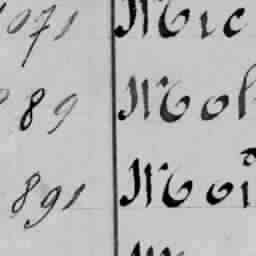 1071 Mic
89 Mol
891 Moi